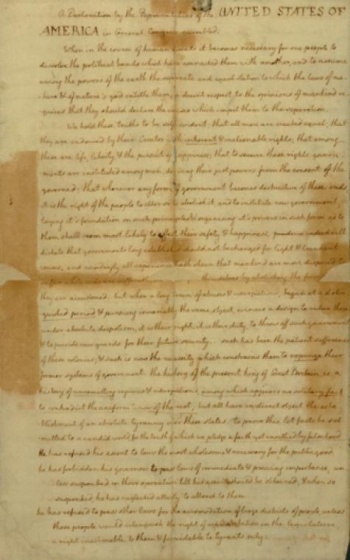 A Declaration by the Representatives of the UNITED STATES OF
AMERICA in General Congress assembled.
When in the course of human events it becomes necessary for one people to
dissolve the political bands which have connected them with another, and to assume
among the powers of the earth the separate and equal station to which the laws of na-
ture & of nature's god entitle them, a decent respect to the opinions of mankind re-
quires that they should declare the causes which impel them to the separation.
We hold these truths to be self evident: that all men are created equal; that
they are endowed by their Creator with inherent & inalienable rights; that among
these are life, liberty & the pursuit of happiness; that to secure these rights, govern-
ments are instituted among men, deriving their just powers from the consent of the
governed; that whenever any form of government becomes destructive of these ends
it is the right of the people to alter or to abolish it, and to institute new government,
laying it's foundation on such principles & organising it's powers in such form as to
them shall seem most likely to effect their safety & happiness. prudence indeed will
dictate that governments long established should not be changed for light & transient
causes; and accordingly all experience hath shewn that mankind are more disposed to
themselves by abolishing the forms
they are accustomed. but when a long train of abuses & usurpations, begun at a dis-
guished period & pursuing invariably the same object, evinces a design to reduce them
under absolute despotism, it is their right, it is their duty, to throw off such government
& to provide new guards for their future security. such has been the patient sufferance
of these colonies; & such is now the necessity which constrains them to expunge their
former systems of government. the history of the present king of Great Britain is a
history of unremitting injuries & usurpations, among which appears no solitary fact
to contradict the uniform tenor of the rest, but all have in direct object the esta-
blishment of an absolute tyranny over these states. to prove this let facts be sub-
mitted to a candid world for the truth of which we pledge a faith yet unsullied by falsehood.
He has refused his assent to laws the most wholesome & necessary for the public good
he has forbidden his governors to pass laws of immediate & pressing importance, un-
less suspended in their operation till his assent should be obtained; & when so
suspended, he has neglected utterly to attend to them.
he has refused to pass other laws for the accommodation of large districts of people unless
those people would relinquish the right of representation in the legislature
a right inestimable to them & formidable to tyrants only